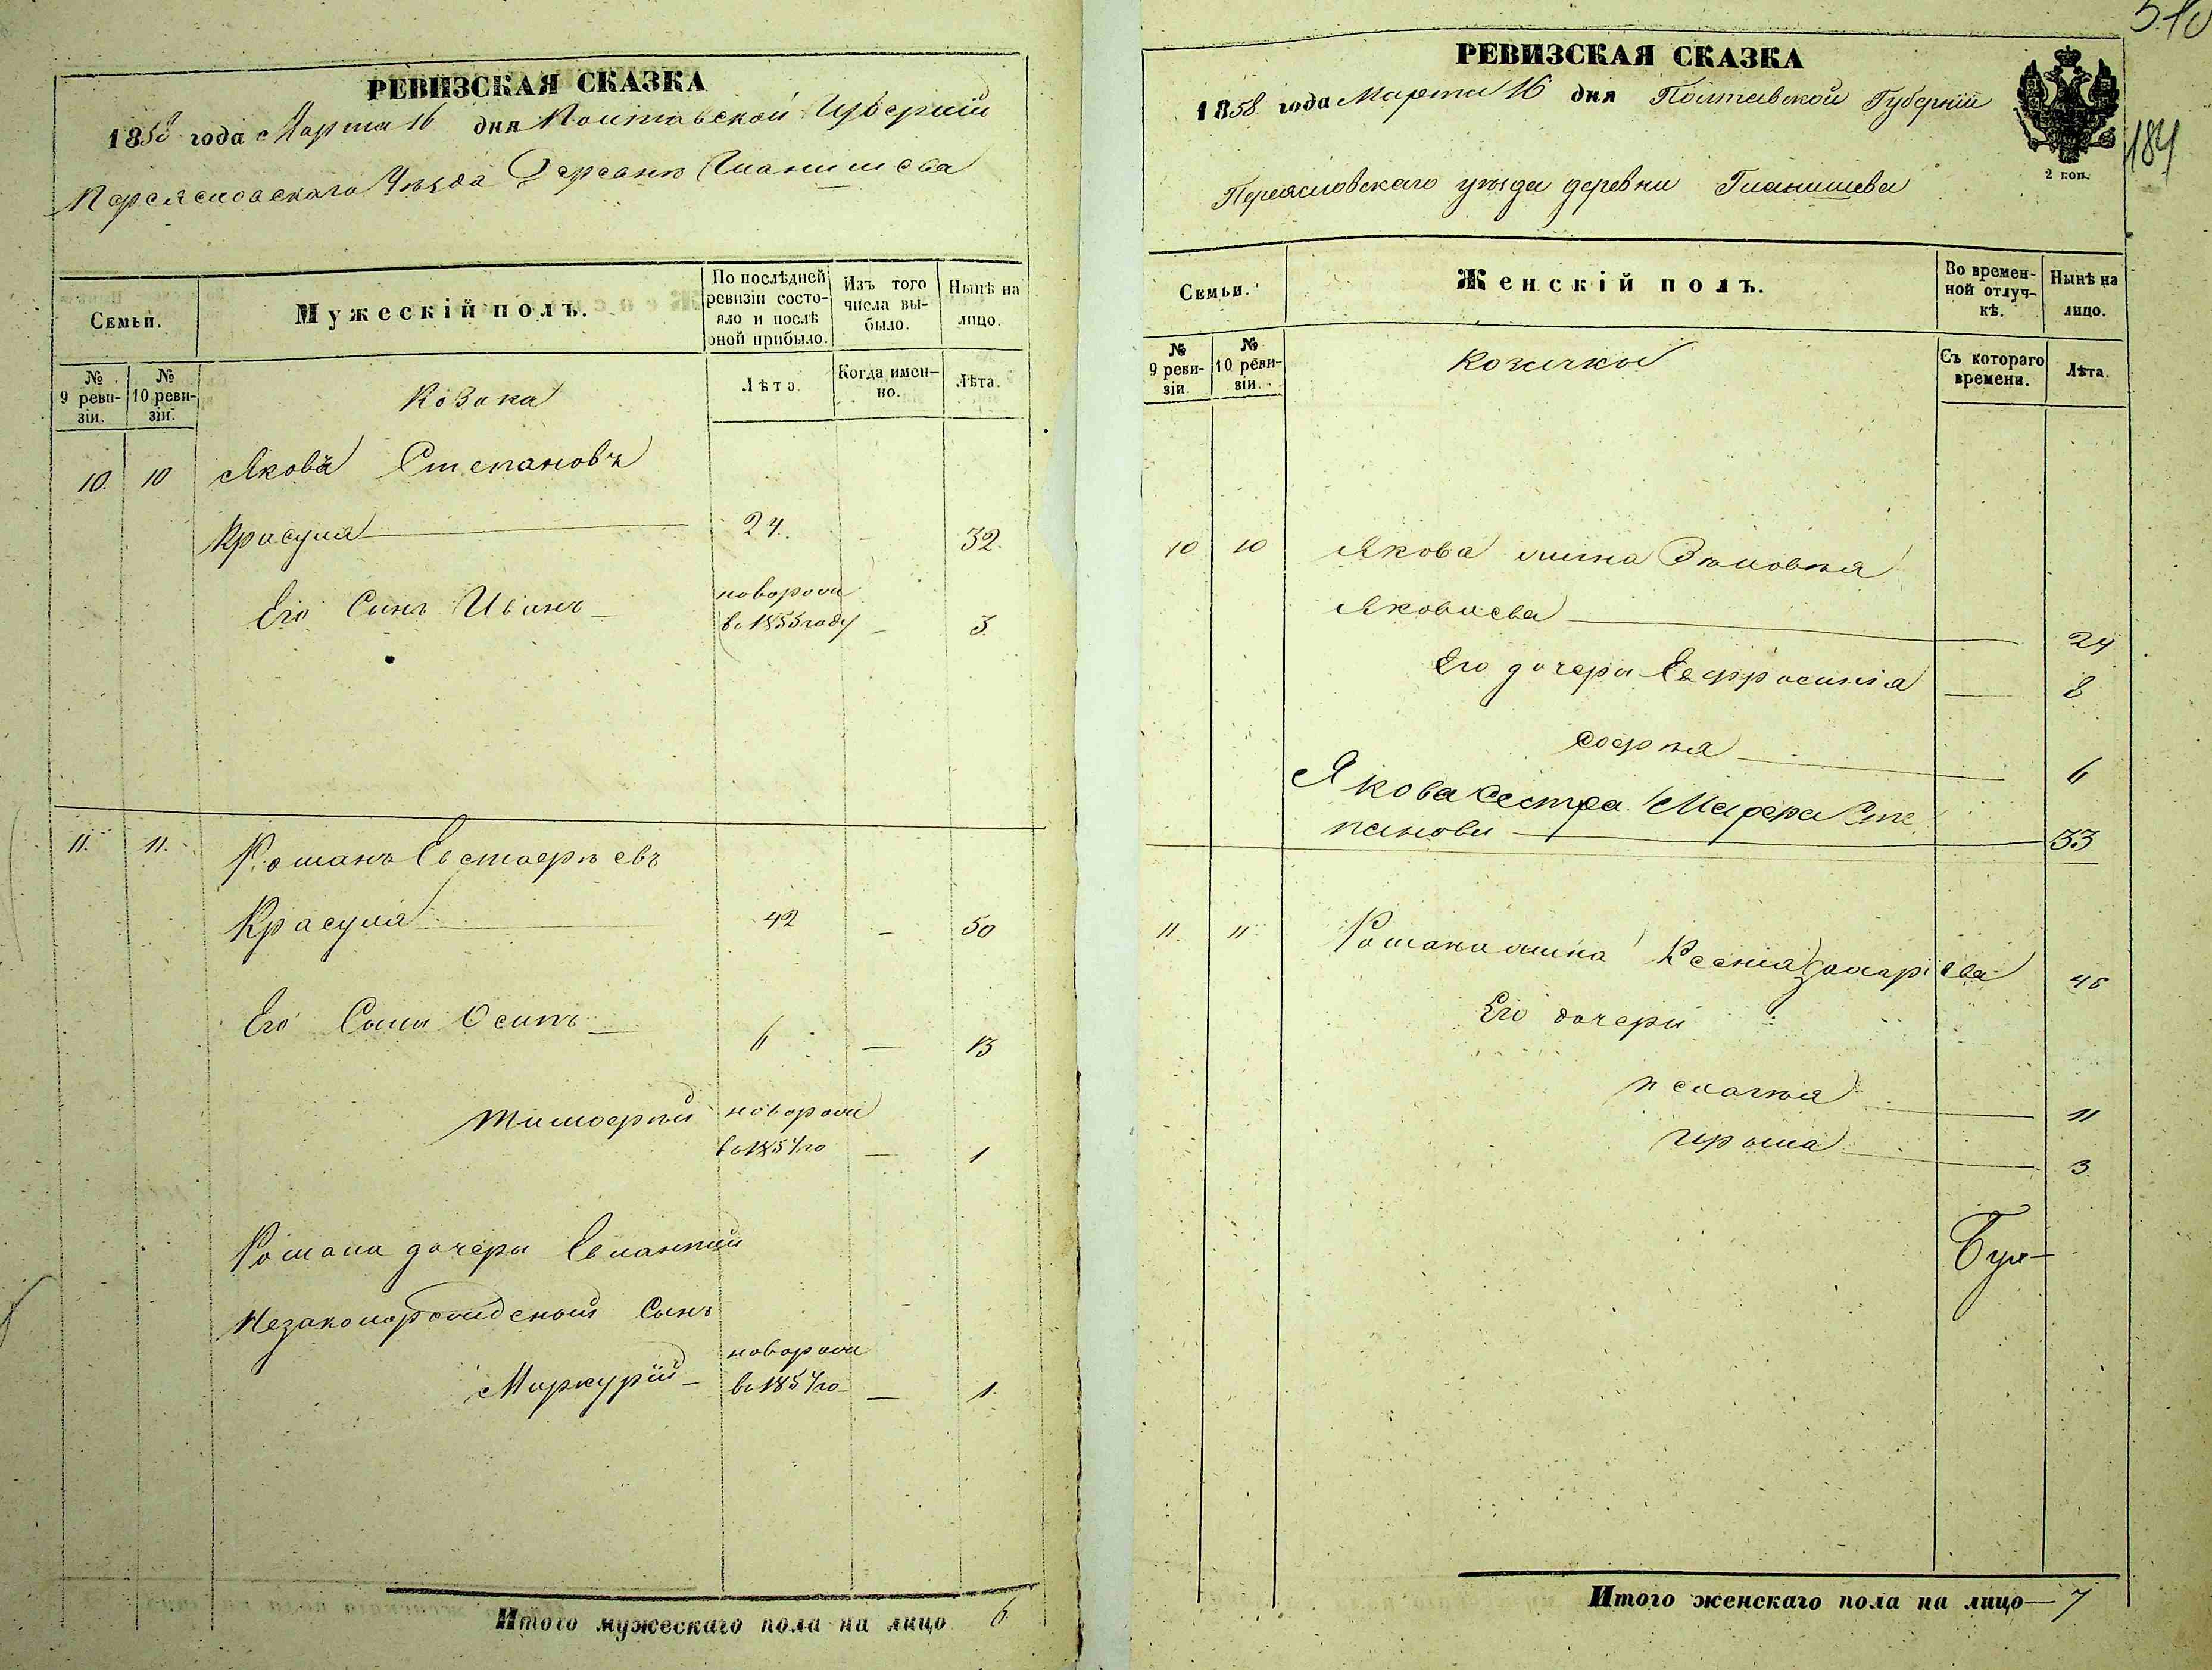 РЕВИЗСКАЯ СКАЗКА
1858 года Марта 16 дня Полтавской Губерніи
Переясловскаго Уѣзда Деревни Гланишева
Семьи.
Мужескій полъ.
По послѣдней ревизіи состояло и послѣ оной прибыло.
Изъ того числа выбыло.
Нынѣ на лицо.
№ 9 ревизіи.
№ 10 ревизіи.
Козака
Лѣта
Когда именно.
Лѣта.
10. 10 Яковъ Степановъ
Красула 24. 32.
Его Синъ Иванъ новорож
въ 1855 году 3.
11. 11. Романъ Евстафіевъ
Красула 42 50
Его Сыны Осипъ 6 13
Тимофей новорож
въ 1857 го 1
Романа дочери Евлампии
Незаконорожденый Сынъ
новорож
Миркурій въ 1857 го 1.
Итого мужескаго пола на лицо 6
510
РЕВИЗСКАЯ СКАЗКА
1858 года Марта 16 дня Полтавской Губерніи
184
2 коп.
Переясловскаго уѣзда деревни Гланишева
Семьи.
Женскій полъ.
Во временной отлучкѣ.
Нынѣ на лицо.
№ 9 ревизіи.
№ 10 ревизіи.
Козачки
Съ котораго времени.
Лѣта.
10 10 Якова жина Зѣновія
Яковлева 24
Его дочери Евфросинія 8
Софія 6
Якова Сестра Марфа Сте
панова 33
11. 11 Романа жина Ксенія Захаріева 46
Его дочери
Пелагія 11
3
Итого женскаго пола на лицо 7